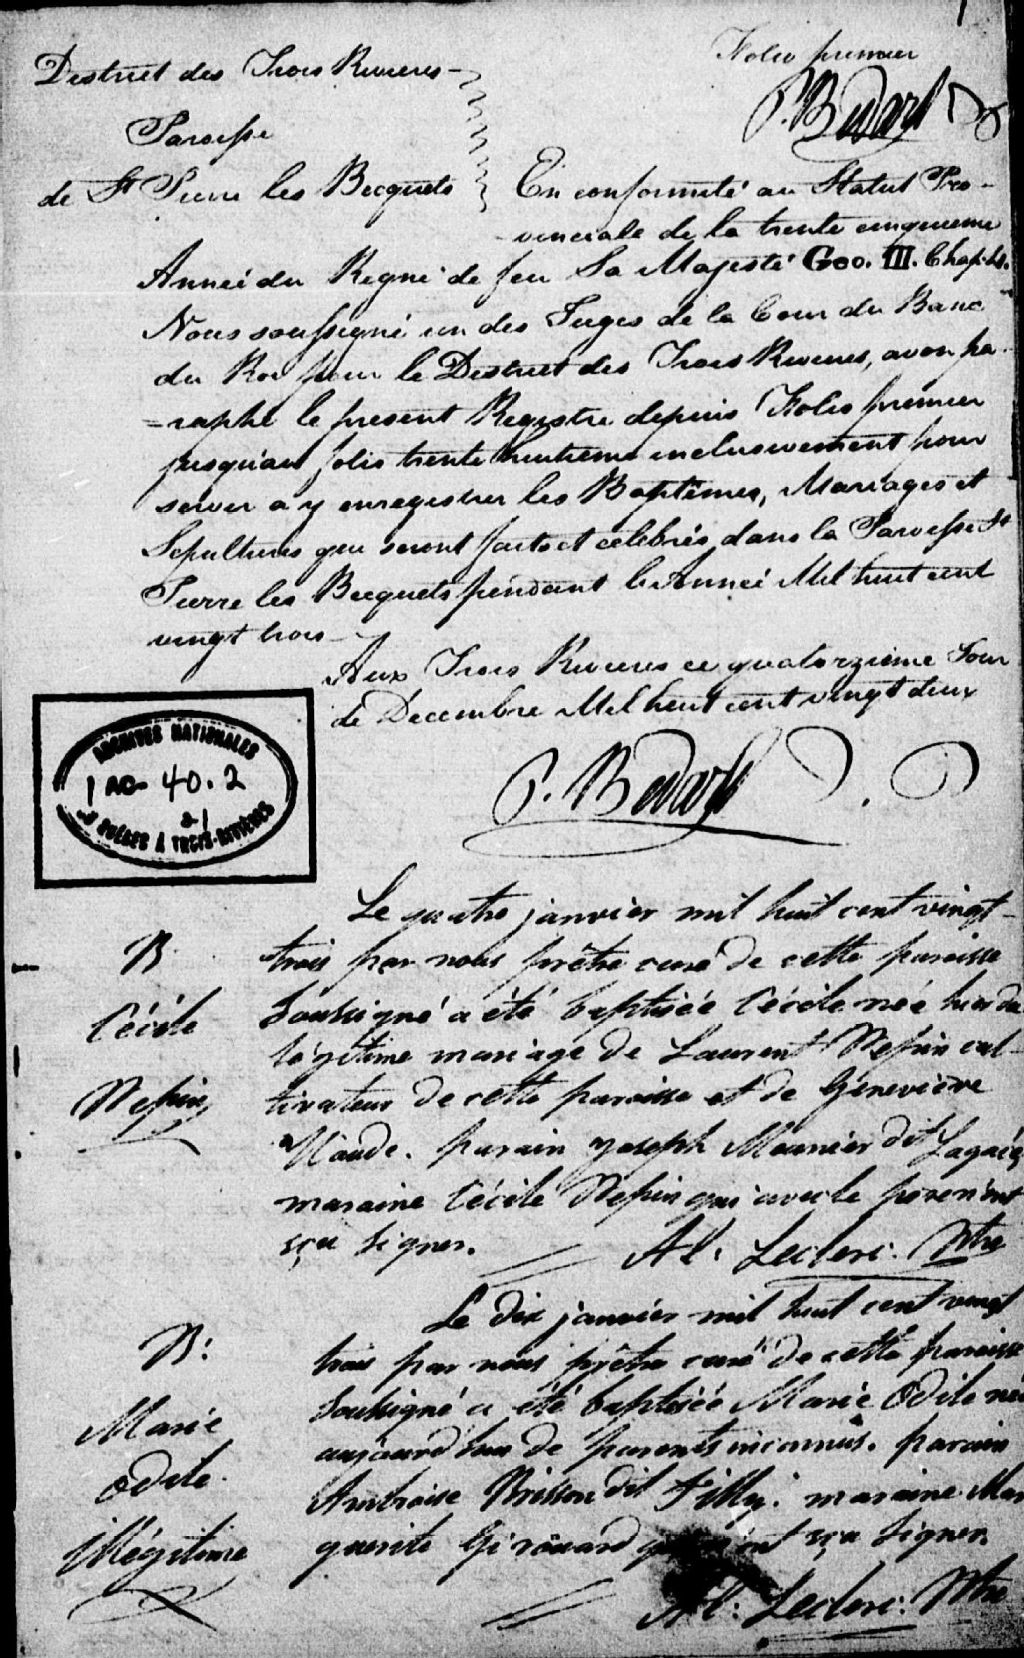 1
Folio premier
P. Bedard
District des Trois Rivieres
Paroisse
de St Pierre les Becquets
En conformité au Statut Pro-
vinciale de la trente cinquieme
Année du Regne de feu Sa Majesté Geo. III. Chap. 4.
Nous soussigné un des Juges de la Cour du Banc
du Roi pour le District des Trois Rivieres, avon pa-
=raphé le present Registre depuis Folio premier
jusqu'au folio trente huitieme inclusivement pour
servir a y enregistrer les Baptêmes, Mariages et
Sepultures qui seront faits et célebrés dans la Paroisse St
Pierre les Becquets pendant l'Année Mil huit cent
vingt trois
Aux Trois Rivieres ce quatorzieme Jour
de Décembre Mil huit cent vingt deux
P. Bedard
ARCHIVES NATIONALES
40.2
21
QUÉBEC À TROIS-RIVIÈRES
Le quatre janvier mil huit cent vingt-
B
trois par nous prêtre curé de cette paroisse
Cécile
Soussigné a été baptisée Cécile née hier du
légitime mariage de Laurent Pepin cul-
Pepin
tivateur de cette paroisse et de Géneviève
Maude. parain Joseph Meunier dit Lagacé,
maraine Cécile Pepin qui avec le pere n'ont
sçu signer.
Al. Leclerc. Ptre
Le dix janvier mil huit cent vingt
B:
trois par nous prêtre curé de cette paroisse
Marie
Soussigné a été baptisée Marie Odile née
Odile
aujourd'hui de parents inconnus. parain
illégitime
Ambroise Brisson dit Tilly. maraine Mar
guerite Girouard qui n'ont sçu signer.
Al. Leclerc. Ptre